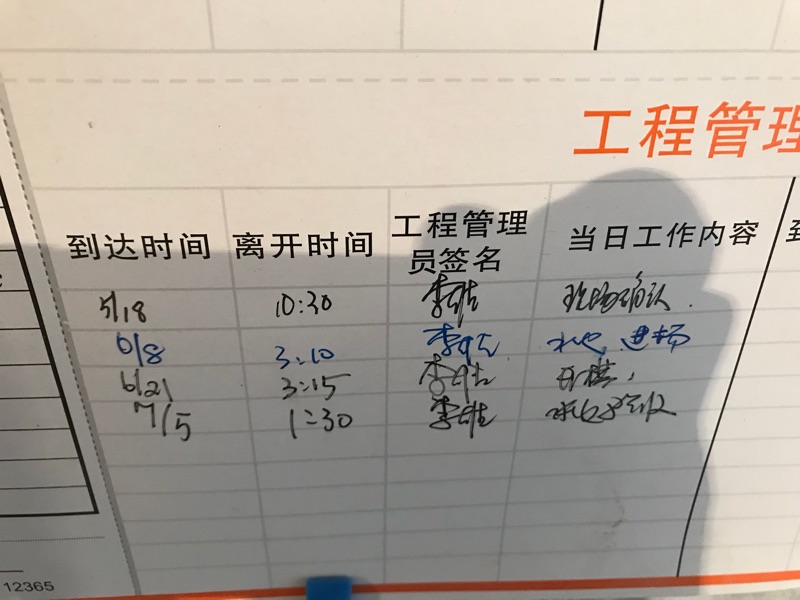 工程管理
到达时间 离开时间 工程管理员签名 当日工作内容 到
5/18 10:30 现场确认.
6/8 3:10 水电进场
6/21 3:15
7/5 1:30 验收
12365